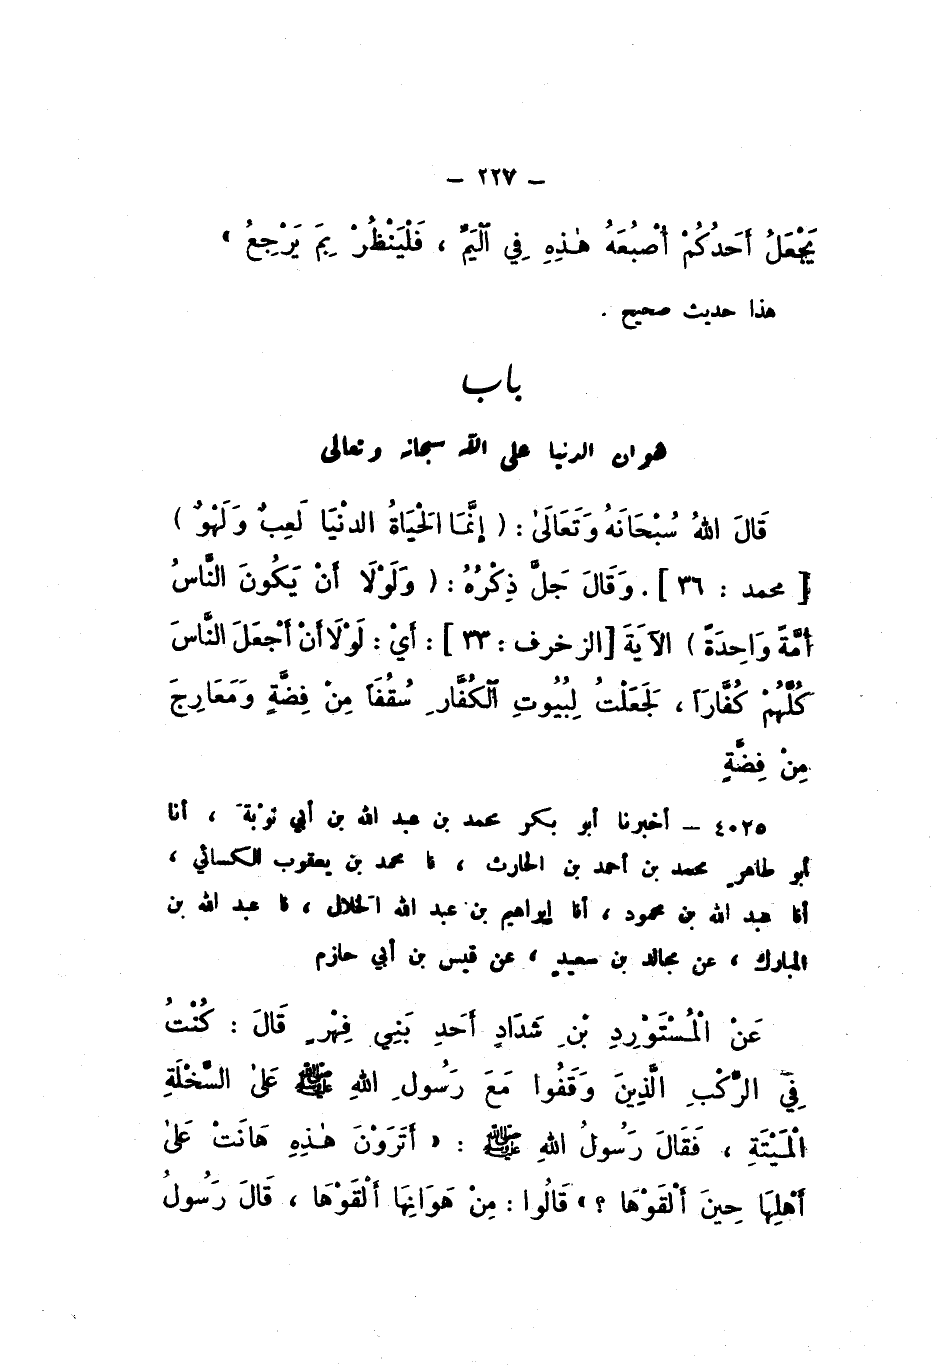 – ٢٢٧ –
يَجْعَلُ أَحَدُكُمْ أُصْبُعَهُ هٰذِهِ فِي ٱلْيَمِّ ، فَلْيَنْظُرْ بِمَ يَرْجِعُ »
هذا حديث صحيح .
باب
هوان الدنيا على الله سبحانه وتعالى
قَالَ اللهُ سُبْحَانَهُ وَتَعَالَىٰ : ( إِنَّمَا الحَيَاةُ الدنْيَا لَعِبٌ وَلَهْوٌ )
[ محمد : ٣٦ ] . وَقَالَ جَلَّ ذِكْرُهُ : ( وَلَوْلَا أَنْ يَكُونَ النَّاسُ
أُمَّةً وَاحِدَةً ) الآيَةَ [ الزخرف : ٣٣ ] : أَيْ : لَوْلَا أَنْ أَجْعَلَ النَّاسَ
كُلَّهُمْ كُفَّارَاً ، لَجَعَلْتُ لِبُيُوتِ ٱلْكُفَّارِ سُقُفَاً مِنْ فِضَّةٍ وَمَعَارِجَ
مِنْ فِضَّةٍ
٤٠٢٥ – أخبرنا أبو بكر محمد بن عبد الله بن أبي توْبةَ ، أنا
أبو طاهرٍ محمد بن أحمد بن الحارث ، نا محمد بن يعقوب الكسائي ،
أنا عبد الله بن محمود ، أنا إبراهيم بن عبد الله الخلال ، نا عبد الله بن
المبارك ، عن مجالد بن سعيدٍ ، عن قيس بن أبي حازم
عَنْ الْمُسْتَوْرِدِ بْنِ شَدَادٍ أَحَدِ بَنِي فِهْرٍ قَالَ : كُنْتُ
فِي الرَّكْبِ الَّذِينَ وَقَفُوا مَعَ رَسُولِ اللهِ ﷺ عَلىٰ السَّخْلَةِ
الْمَيْتَةِ ، فَقَالَ رَسُولُ اللهِ ﷺ : « أَتَرَوْنَ هٰذِهِ هَانَتْ عَلىٰ
أَهْلِهَا حِينَ أَلْقَوْهَا ؟ » قَالُوا : مِنْ هَوَانِهَا أَلْقَوْهَا ، قَالَ رَسُولُ